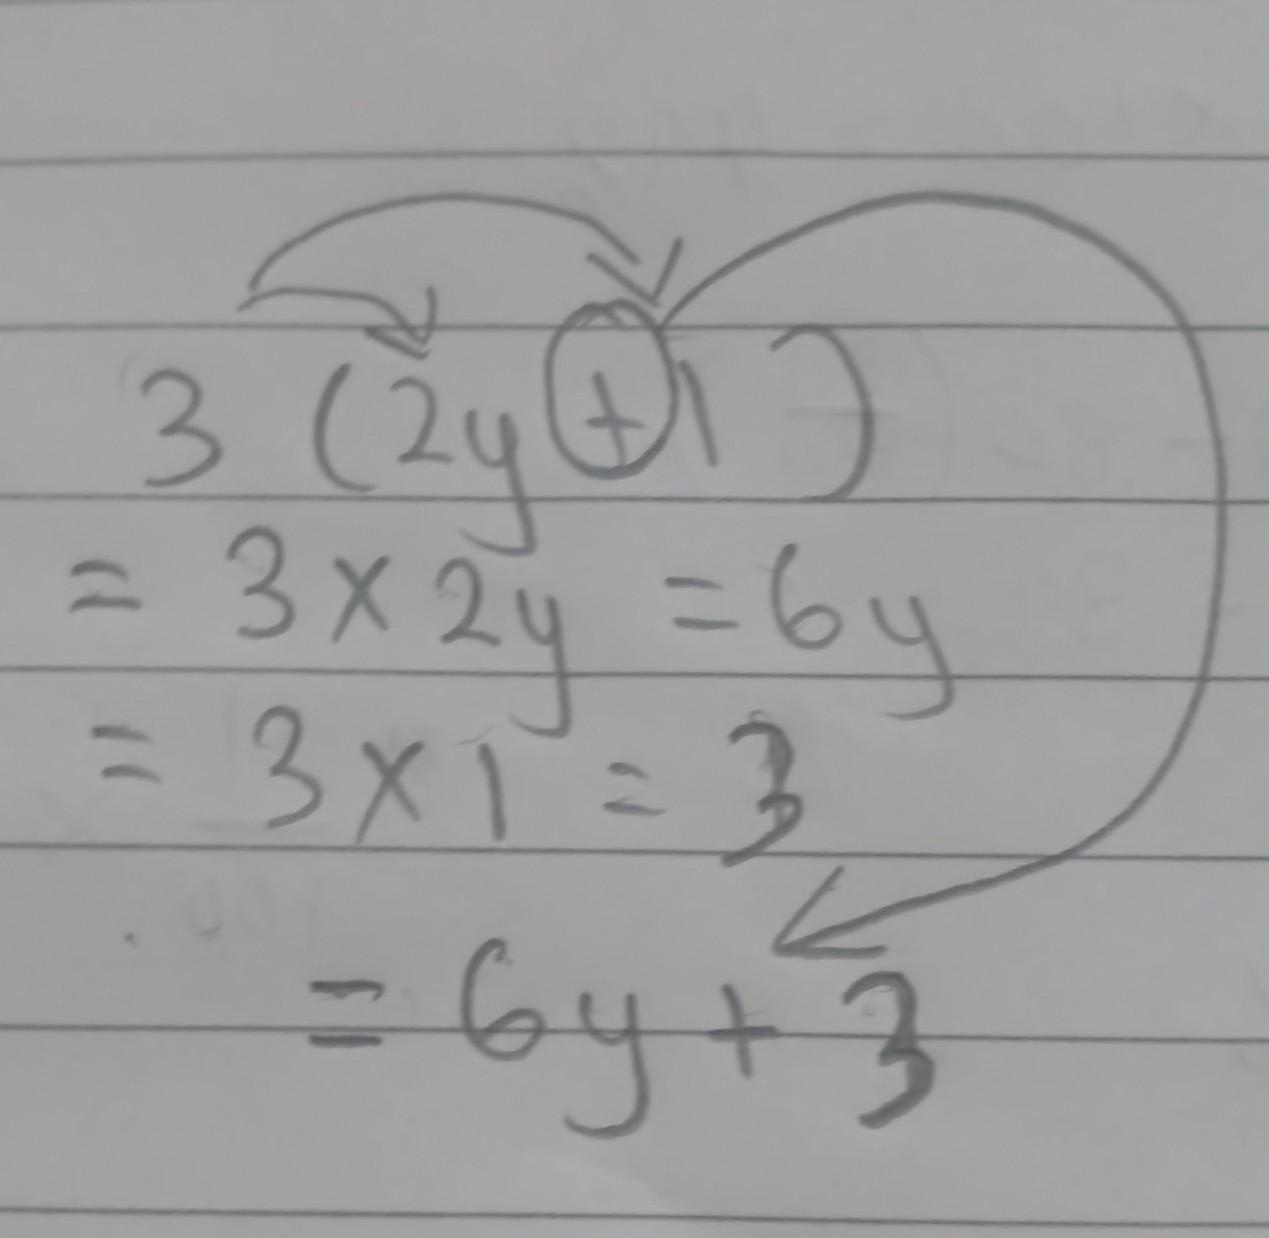 3 (2y + 1)
= 3 × 2y = 6y
= 3 × 1 = 3
= 6y + 3